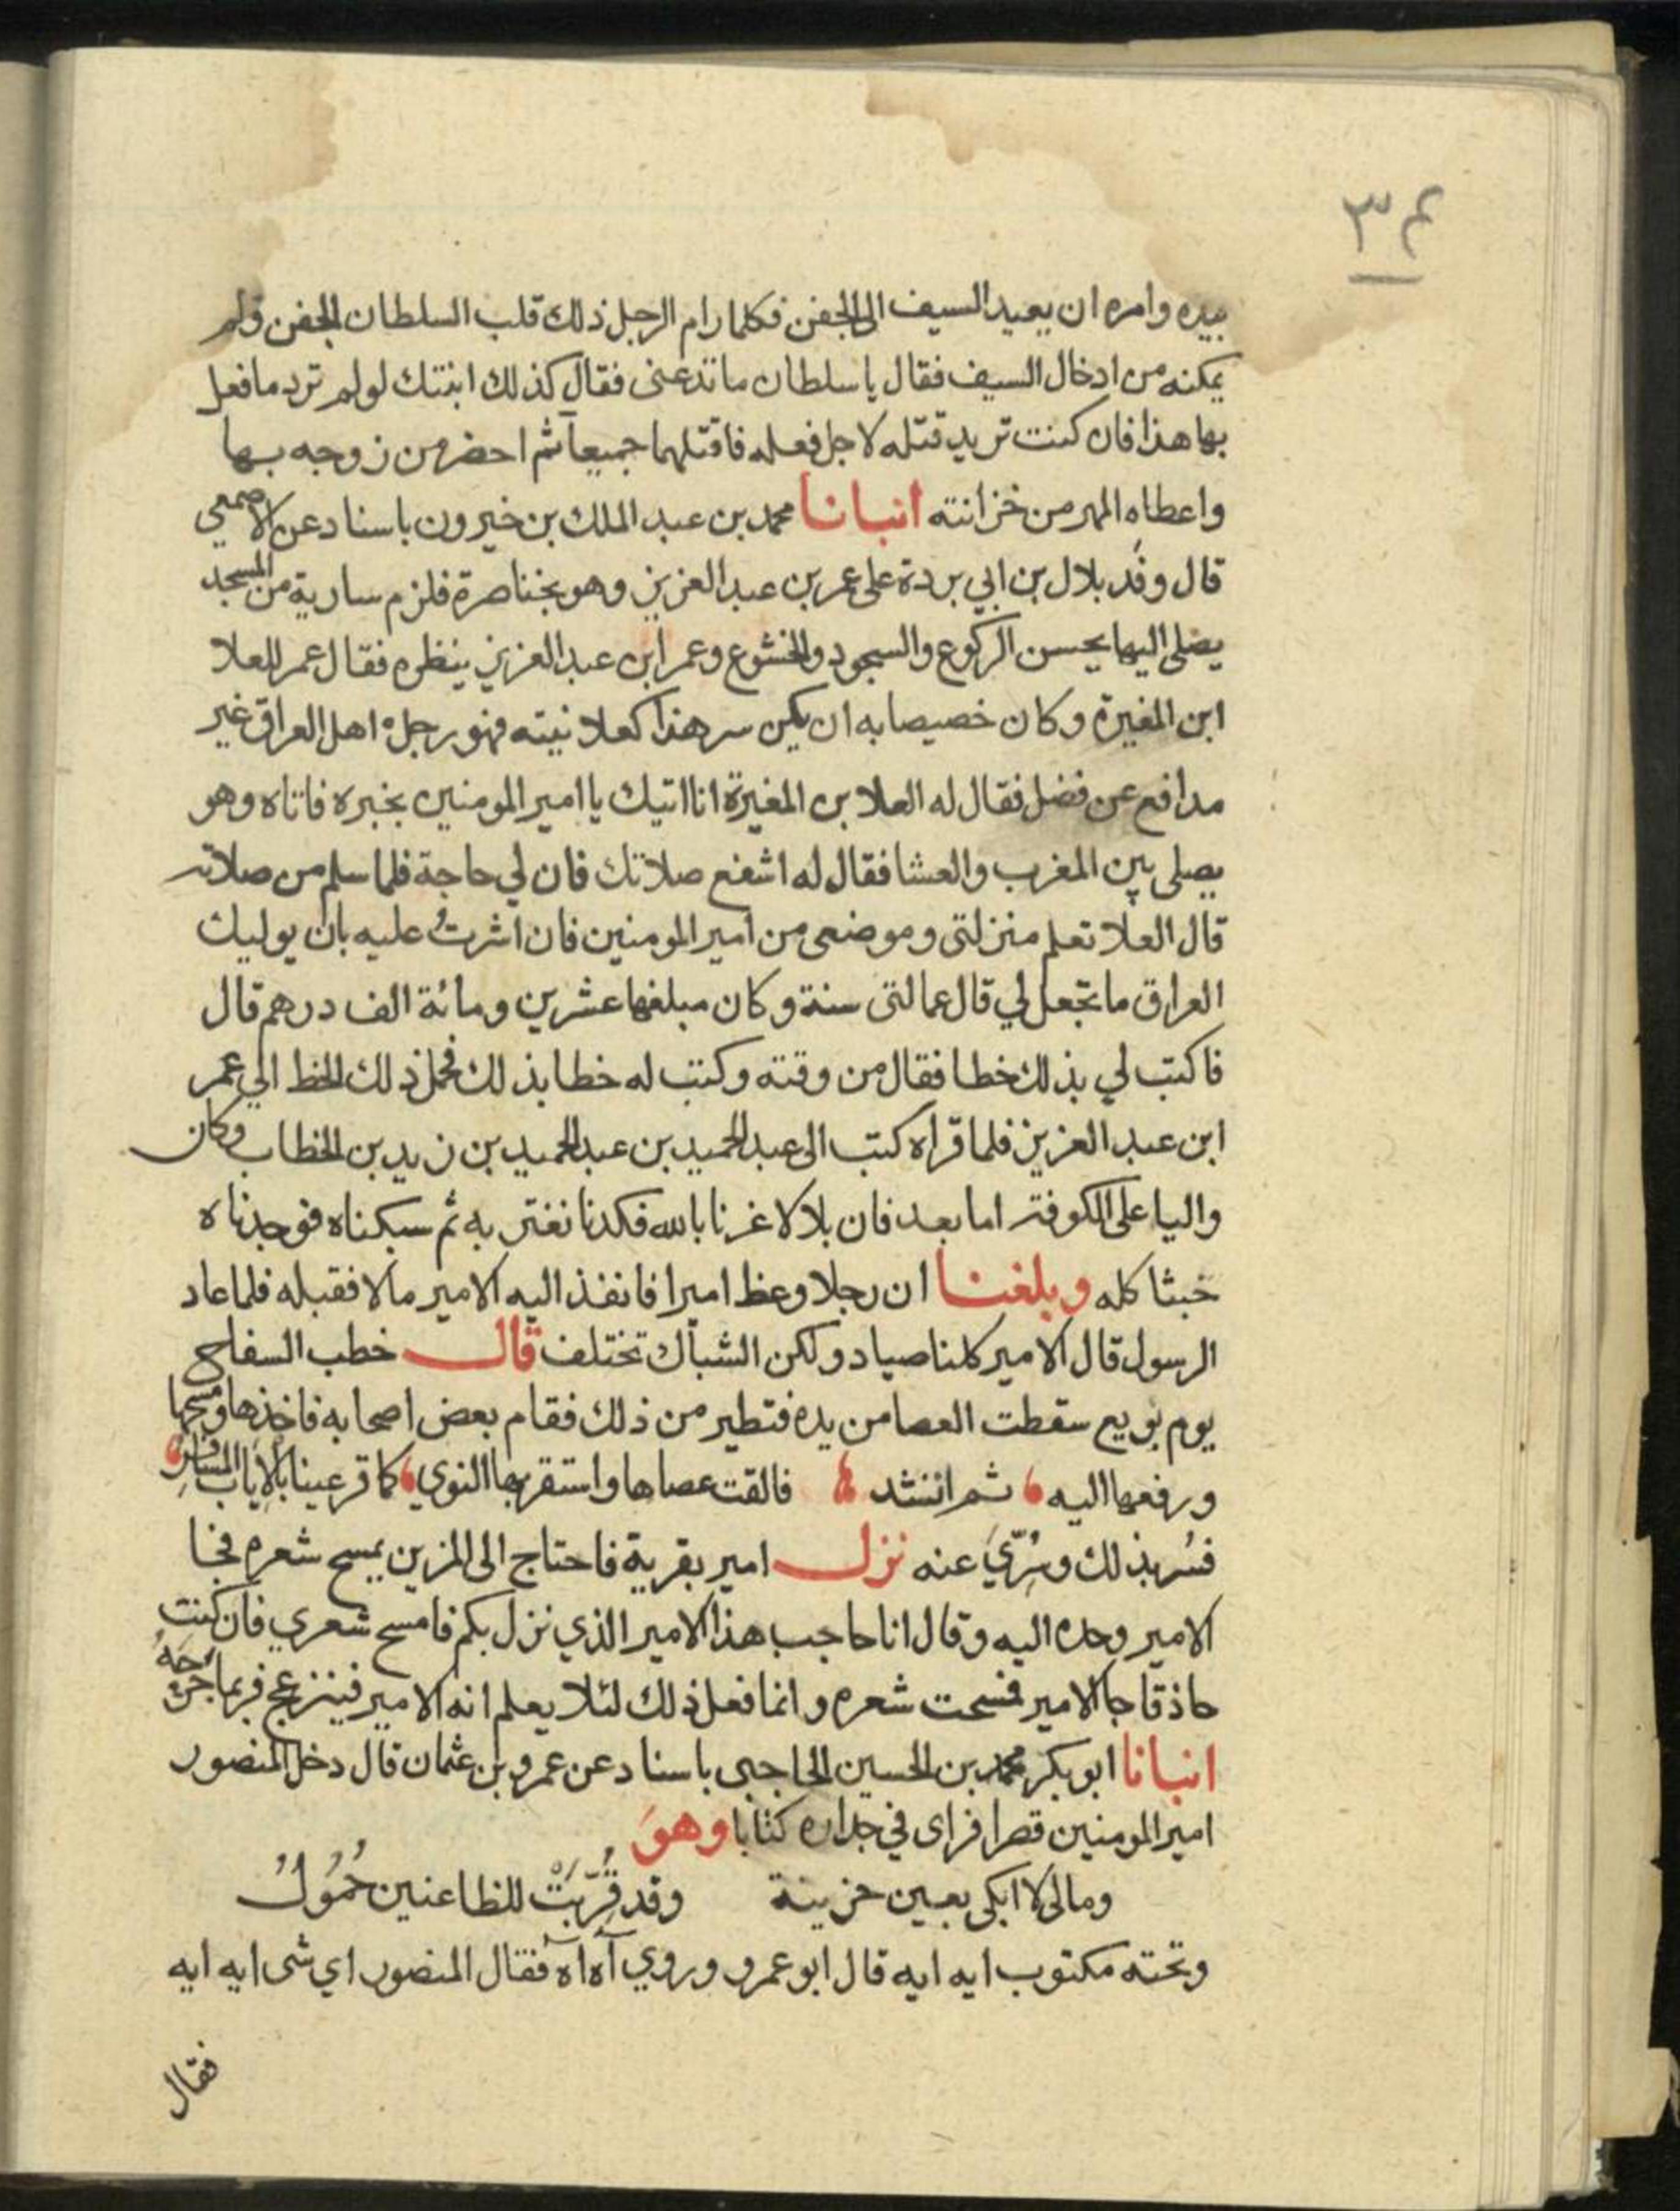 ٣٤
بيده وامره ان يعيد السيف الى الجفن فكلما رام الرجل ذلك قلب السلطان الجفن ولم
يمكنه من ادخال السيف فقال ياسلطان ما تدعنى فقال كذلك ابنتك لولم ترد ما فعل
بها هذا فان كنت تريد قتله لاجل فعله فاقتلهما جميعاً ثم احضر من زوجه بها
واعطاه المهر من خزانته انبانا محمد بن عبد الملك بن خيرون باسناد عن الاصمعي
قال وفد بلال بن ابي بردة على عمر بن عبد العزيز وهو بخناصرة فلزم سارية من المسجد
يصلى اليها يحسن الركوع والسجود والخشوع وعمر ابن عبد العزيز ينظره فقال عمر للعلا
ابن المغيرة وكان خصيصا به ان يكن سر هذا كعلانيته فهو رجل اهل العراق غير
مدافع عن فضل فقال له العلا بن المغيرة انا اتيك يا امير المومنين بخبره فاتاه وهو
يصلى بين المغرب والعشا فقال له اشفع صلاتك فان لي حاجة فلما سلم من صلاته
قال العلا تعلم منزلتى وموضعى من امير المومنين فان اشرتُ عليه بان يوليك
العراق ما تجعل لي قال عمالتى سنة وكان مبلغها عشرين ومائة الف درهم قال
فاكتب لي بذلك خطا فقال من وقته وكتب له خطا بذلك فحمل ذلك الخط الي عمر
ابن عبد العزيز فلما قراه كتب الى عبد الحميد بن عبد الحميد بن زيد بن الخطاب وكان
واليا على الكوفة اما بعد فان بلالا غرنا بالله فكدنا نغتر به ثم سبكناه فوجدناه
خبثا كله وبلغنا ان رجلا وعظ اميرا فانفذ اليه الامير مالا فقبله فلما عاد
الرسول قال الامير كلنا صياد ولكن الشباك تختلف قال خطب السفاح
يوم بويع سقطت العصا من يده فتطير من ذلك فقام بعض اصحابه فاخذها ومسحها
ورفعها اليه ثم انشد فالقت عصاها واستقر بها النوي كما قر عينا بالاياب المسافر
فسُر بذلك وسُرّيَ عنه نزل امير بقرية فاحتاج الى المزين يمسح شعره فجا
الامير وحده اليه وقال انا حاجب هذا الامير الذي نزل بكم فامسح شعري فان كنت
حاذقا جا الامير فمسحت شعره وانما فعل ذلك لئلا يعلم انه الامير فينزعج فربما جرحهُ
انبانا ابو بكر محمد بن الحسين الحاجبى باسناد عن عمرو بن عثمان قال دخل المنصور
امير المومنين قصرا فراى في جداره كتابا وهوَ
ومالى لا ابكى بعين حزينة وقد قُرِّبَتْ للظاعنين حُمُولُ
وتحته مكتوب ايه ايه قال ابو عمرو وروي آه اه فقال المنصور اي شى ايه ايه
فقال